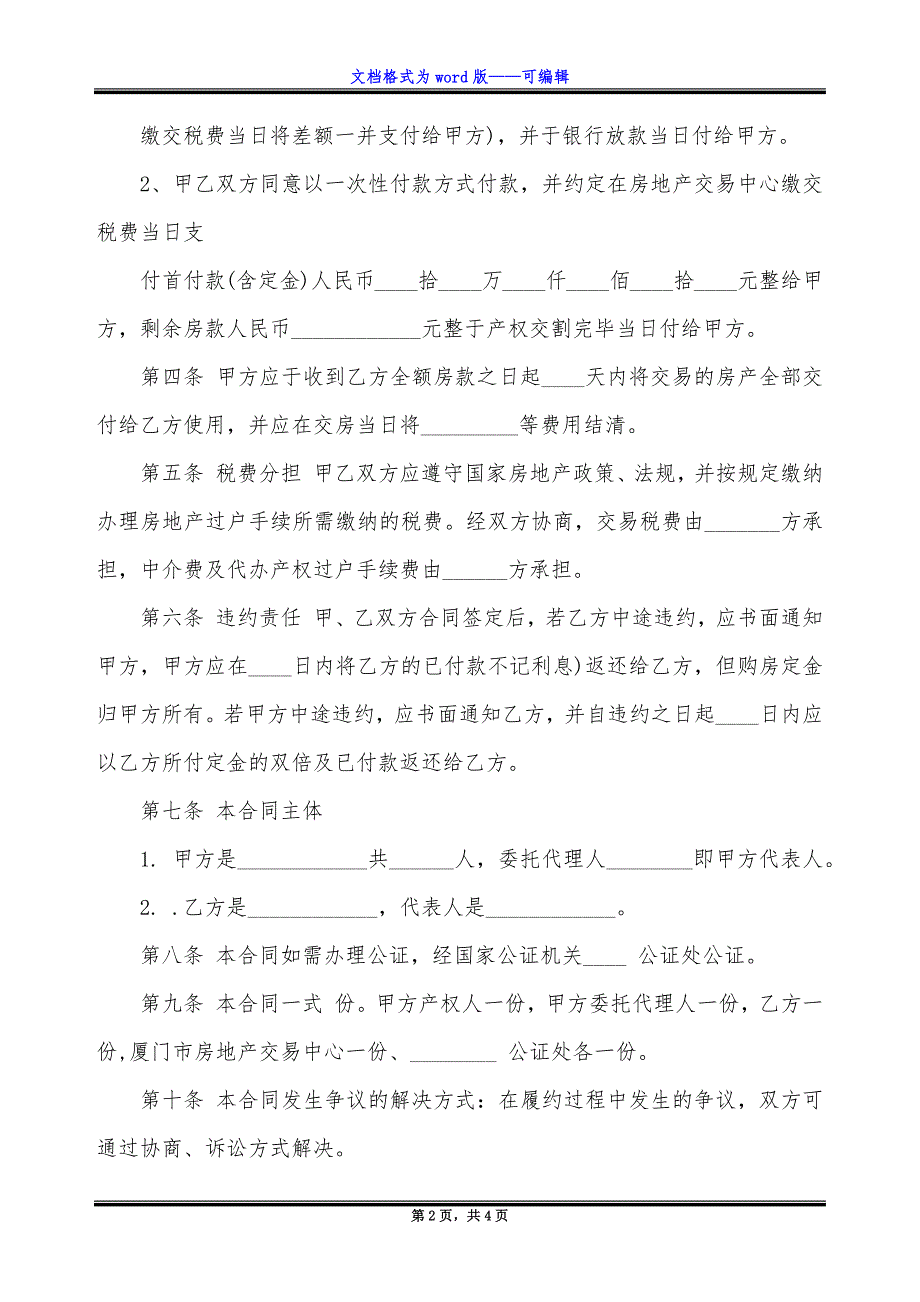 文档格式为 word 版——可编辑
缴交税费当日将差额一并支付给甲方)，并于银行放款当日付给甲方。
2、甲乙双方同意以一次性付款方式付款，并约定在房地产交易中心缴交
税费当日支
付首付款(含定金)人民币____拾____万____仟____佰____拾____元整给甲
方，剩余房款人民币____________元整于产权交割完毕当日付给甲方。
第四条 甲方应于收到乙方全额房款之日起____天内将交易的房产全部交
付给乙方使用，并应在交房当日将_________等费用结清。
第五条 税费分担 甲乙双方应遵守国家房地产政策、法规，并按规定缴纳
办理房地产过户手续所需缴纳的税费。经双方协商，交易税费由_______方承
担，中介费及代办产权过户手续费由______方承担。
第六条 违约责任 甲、乙双方合同签定后，若乙方中途违约，应书面通知
甲方，甲方应在____日内将乙方的已付款不记利息)返还给乙方，但购房定金
归甲方所有。若甲方中途违约，应书面通知乙方，并自违约之日起____日内应
以乙方所付定金的双倍及已付款返还给乙方。
第七条 本合同主体
1. 甲方是____________共______人，委托代理人________即甲方代表人。
2. .乙方是____________，代表人是____________。
第八条 本合同如需办理公证，经国家公证机关____ 公证处公证。
第九条 本合同一式 份。甲方产权人一份，甲方委托代理人一份，乙方一
份,厦门市房地产交易中心一份、________ 公证处各一份。
第十条 本合同发生争议的解决方式：在履约过程中发生的争议，双方可
通过协商、诉讼方式解决。
第 2 页，共 4 页